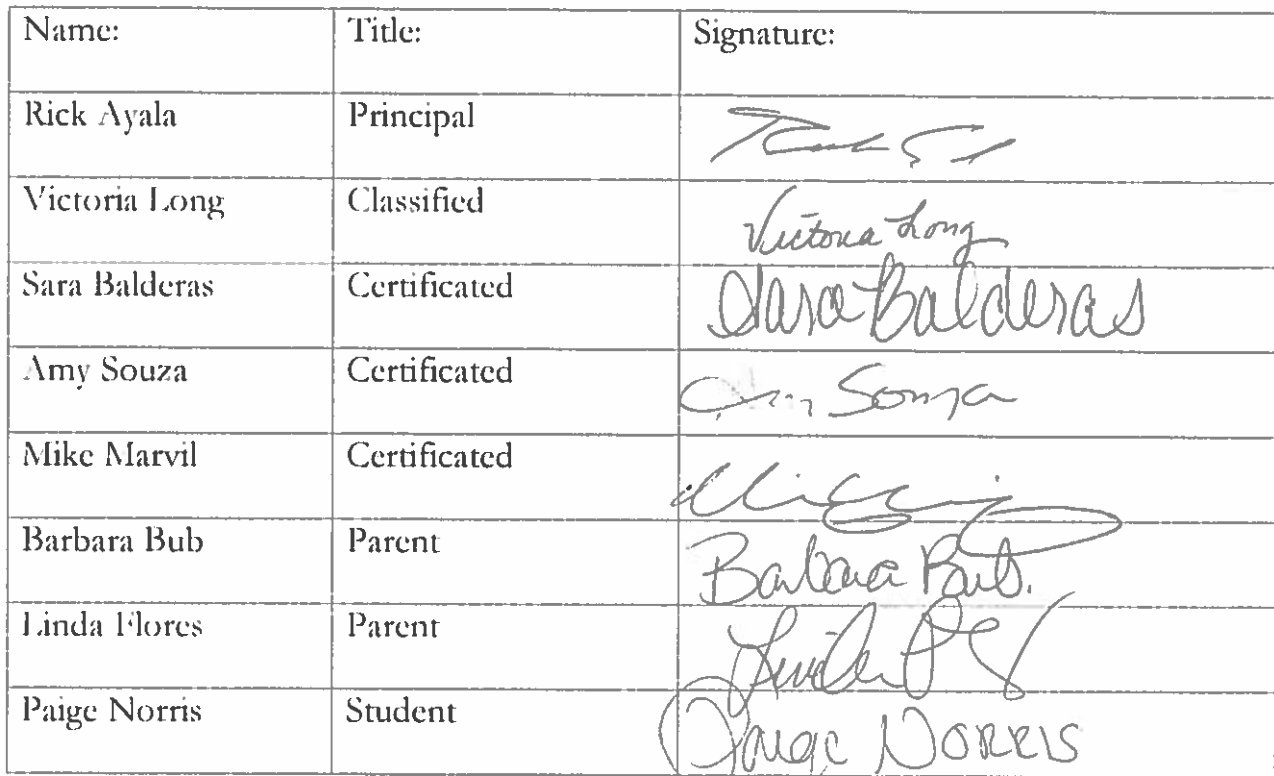 Name: Title: Signature:
Rick Ayala Principal
Victoria Long Classified Victoria Long
Sara Balderas Certificated Sara Balderas
Amy Souza Certificated Amy Souza
Mike Marvil Certificated
Barbara Bub Parent Barbara Bub.
Linda Flores Parent Linda
Paige Norris Student Paige Norris